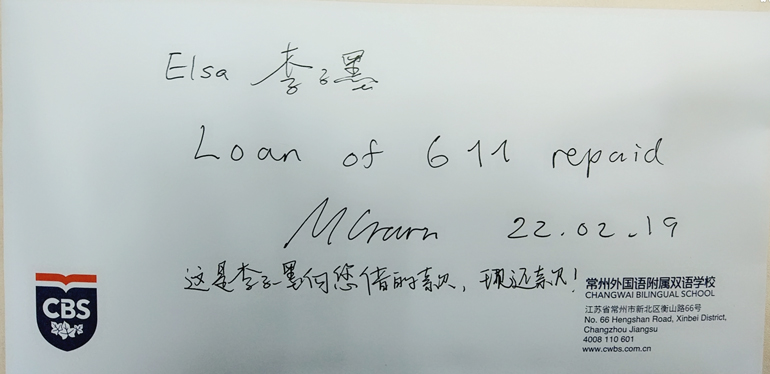 Elsa 李子墨
Loan of 611 repaid
22.02.19
这是李子墨向您借的款, 现还款!
CBS
常州外国语附属双语学校
CHANGWAI BILINGUAL SCHOOL
江苏省常州市新北区衡山路66号
No. 66 Hengshan Road, Xinbei District,
Changzhou Jiangsu
4008 110 601
www.cwbs.com.cn